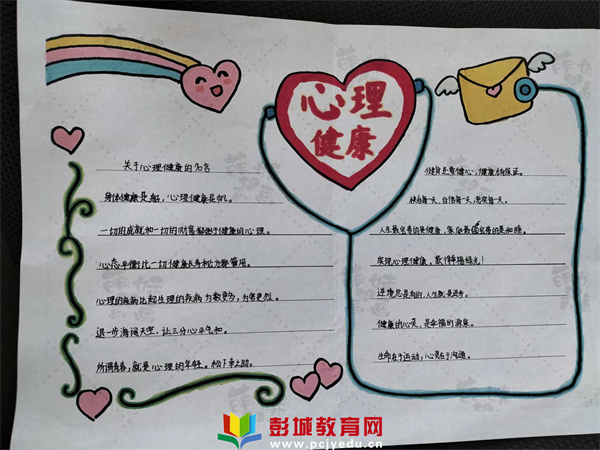 心理
健康
关于心理健康的名言
身体健康是船，心理健康是帆。
一切的成就和一切的财富都始于健康的心理。
心态平衡比一切健康长寿秘方都管用。
心理的疾病比起生理的疾病为数更多，为害更烈。
退一步海阔天空，让三分心平气和。
所谓青春，就是心理的年轻。松下幸之助。
健身
快乐每一天，自信每一天，充实每一天。
人生最宝贵的是健康，家庭最宝贵的是和睦。
实现心理健康，获得幸福绿光！
逆境总是有的，人生就是进击。
健康的心灵，是幸福的源泉。
生命在于运动，心灵在于沟通。
彭城教育网
www.pcjyedu.cn